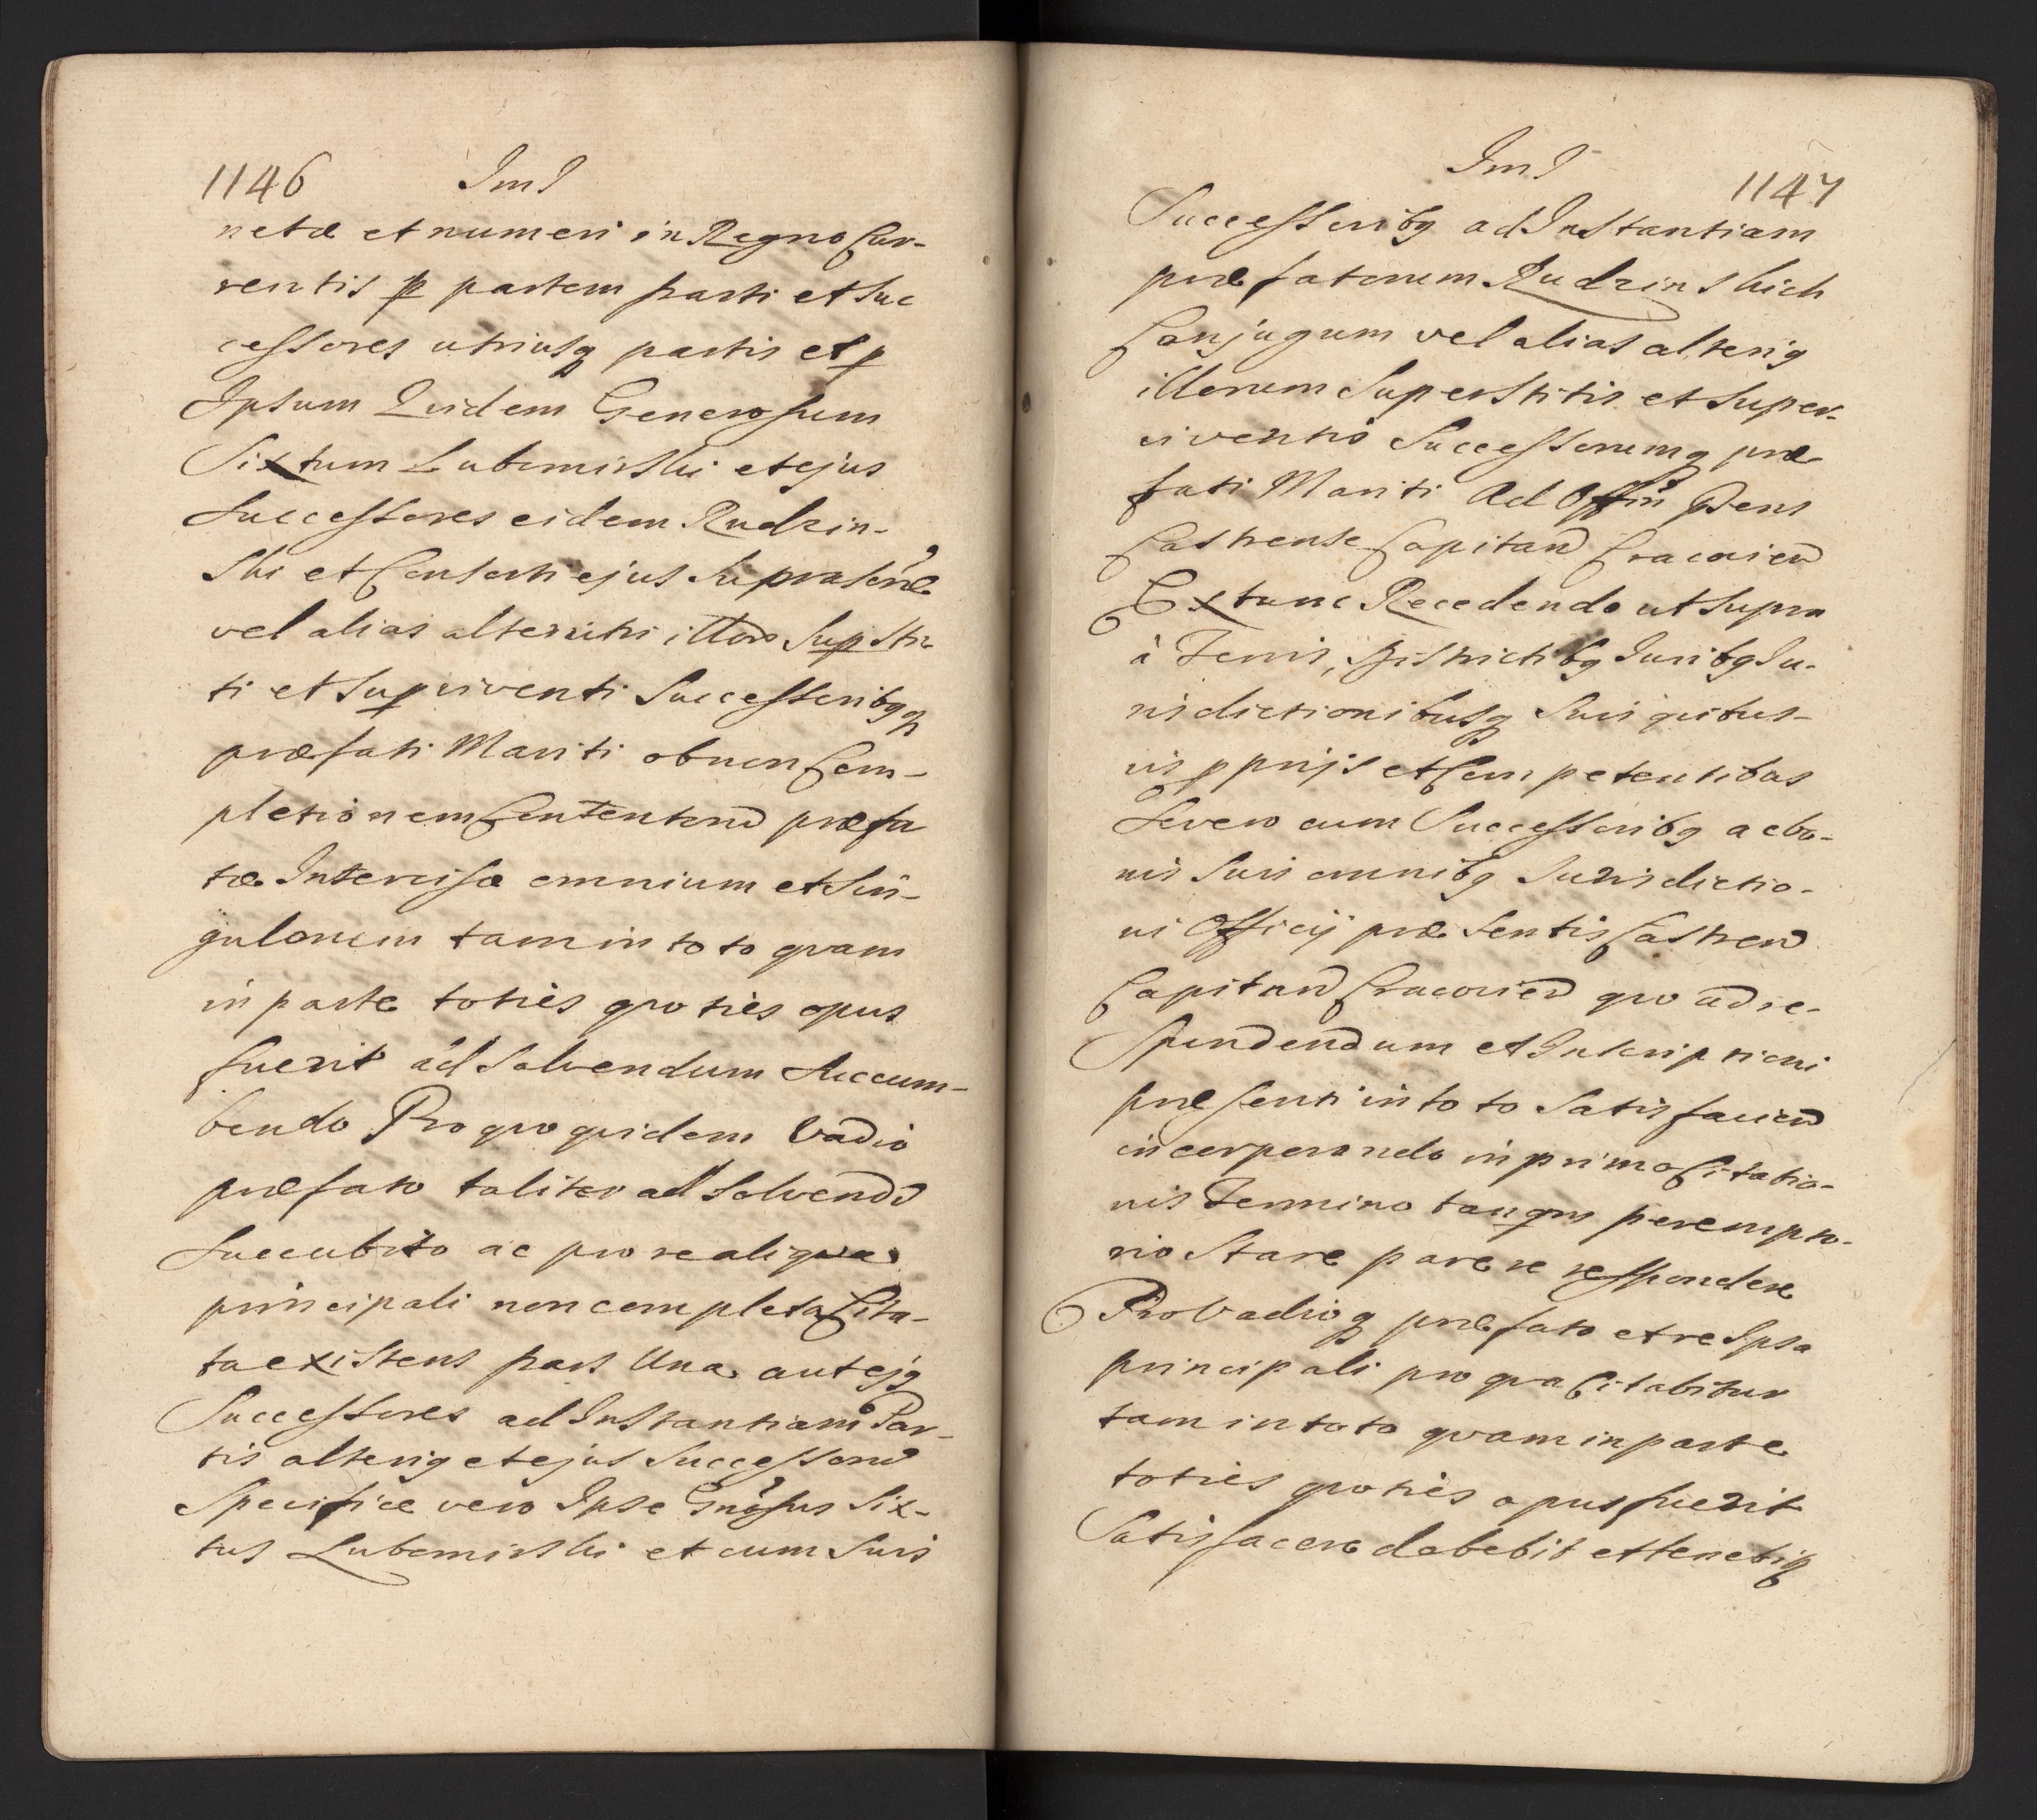 1146 Im̃S
netæ et numeri in Regno Cur-
rentis p partem parti et Suc
cessores utriusq partis et p
Ipsum Quidem Generosum
Sixtum Lubomirski et ejus
Successores eidem Rudzin-
ski et Consorti ejus Suprascrae
vel alias alterutri illor Supsti-
ti et Supviventi Successoribqq
præfati Mariti ob non Com-
pletionem Contentorũ præfa
tæ Intercisæ omnium et Sin-
gulorum tam in toto qvam
in parte toties qvoties opus
fuerit ad Solvendum Succum-
bendo Pro qvo qvidem Vadio
præfato taliter ad Solvendũ
Succubito ac pro re aliqva
principali non completa Cita-
ta existens pars Una aut ejq
Successores ad Instantiam Par-
tis alteriq et ejus Successorũ
Specifice vero Ipse Gnosus Six-
tus Lubomirski et cum Suis
Im̃S 1147
Successoribq ad Instantiam
præfatorum Rudzinskich
Conjugum vel alias alteriq
illorum Superstitis et Super-
viventis Successorumq præ
fati Mariti Ad Offm Præns
Castrense Capitan Cracovien
Extunc Recedendo ut Supra
à Terris, Districtibq Juribq Ju-
risdictionibusq Suis qvibus-
vis pprijs et Competentibus
Se vero cum Successoribq ac bo-
nis Suis omnibq Jurisdictio-
ni Officij præsentis Castren
Capitan Cracovien qvo ad re-
Spondendum et Inscriptioni
præsenti in toto Satisfacien
incorporando in primo Citatio-
nis Termino tanqm perempto-
rio Stare parere respondere
Pro Vadioq præfato et re Ipsa
principali pro qva Citabitur
tam in toto qvam in parte
toties qvoties opus fuerit
Satisfacere debebit et tenebiq